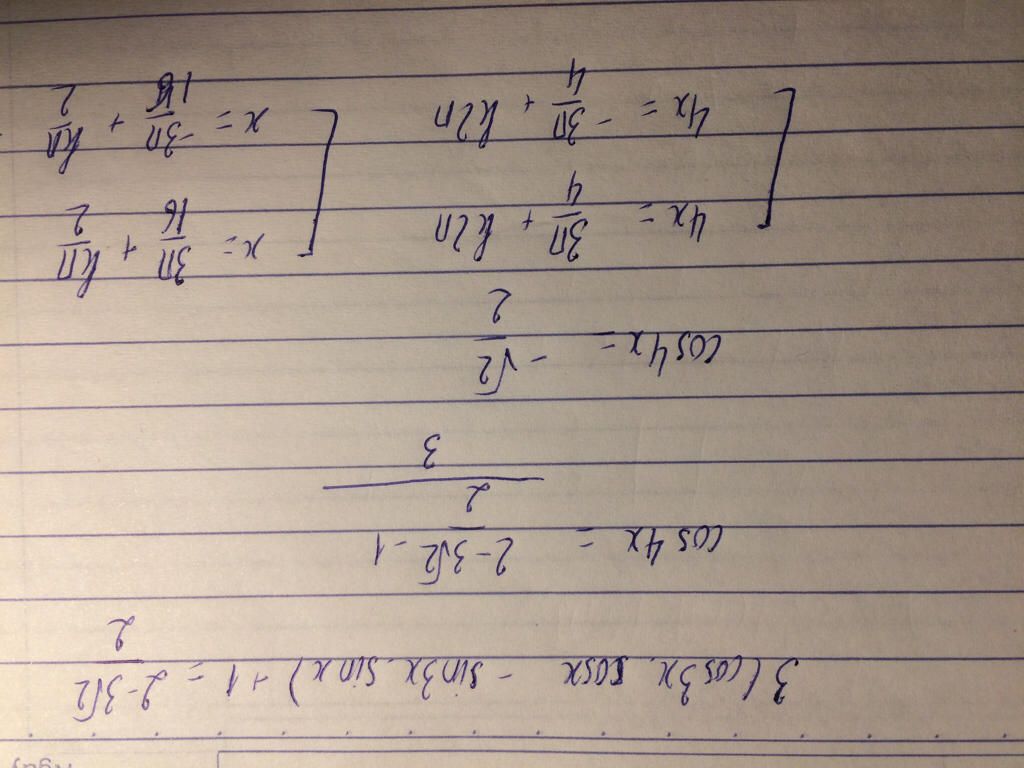 3(cos3x.cosx - sin3x.sinx) + 1 = \frac{2-3√2}{2}
cos4x = \frac{\frac{2-3√2}{2} - 1}{3}
cos4x = -\frac{√2}{2}
[ 4x = \frac{3π}{4} + k2π [ x = \frac{3π}{16} + \frac{kπ}{2}
4x = -\frac{3π}{4} + k2π x = \frac{-3π}{16} + \frac{kπ}{2}